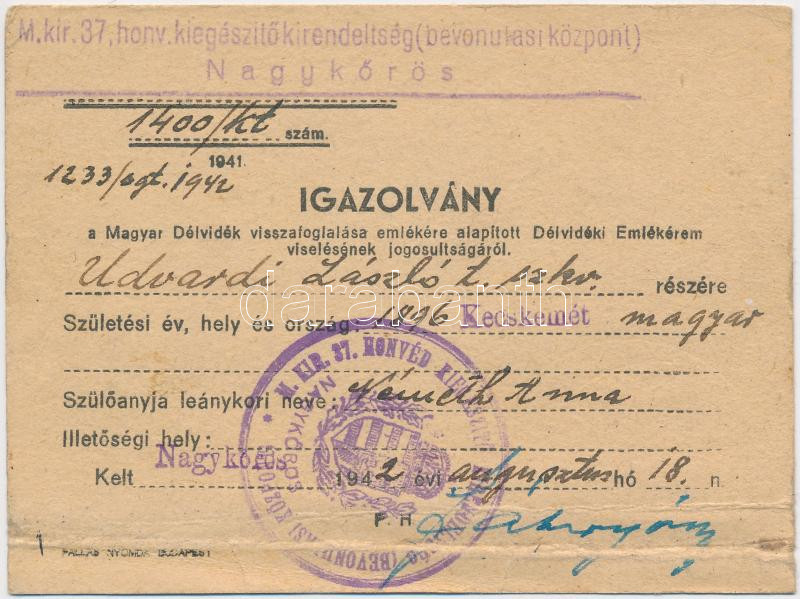 M.kir.37,honv.kiegészítőkirendeltség(bevonulasi központ)
Nagykőrös
1400/kt szám.
1941.
1233/ 1942
IGAZOLVÁNY
a Magyar Délvidék visszafoglalása emlékére alapított Délvidéki Emlékérem
viselésének jogosultságáról.
Udvardi László t. szkv. részére
Születési év, hely és ország: 1896 Kecskemét magyar
Szülőanyja leánykori neve: Németh Anna
Illetőségi hely:
Kelt Nagykőrös 1942 évi augusztus hó 18. n
P. H
1 PALLAS NYOMDA BUDAPEST
M. KIR. 37. HONVÉD
NAGYKŐRÖS
darabanth